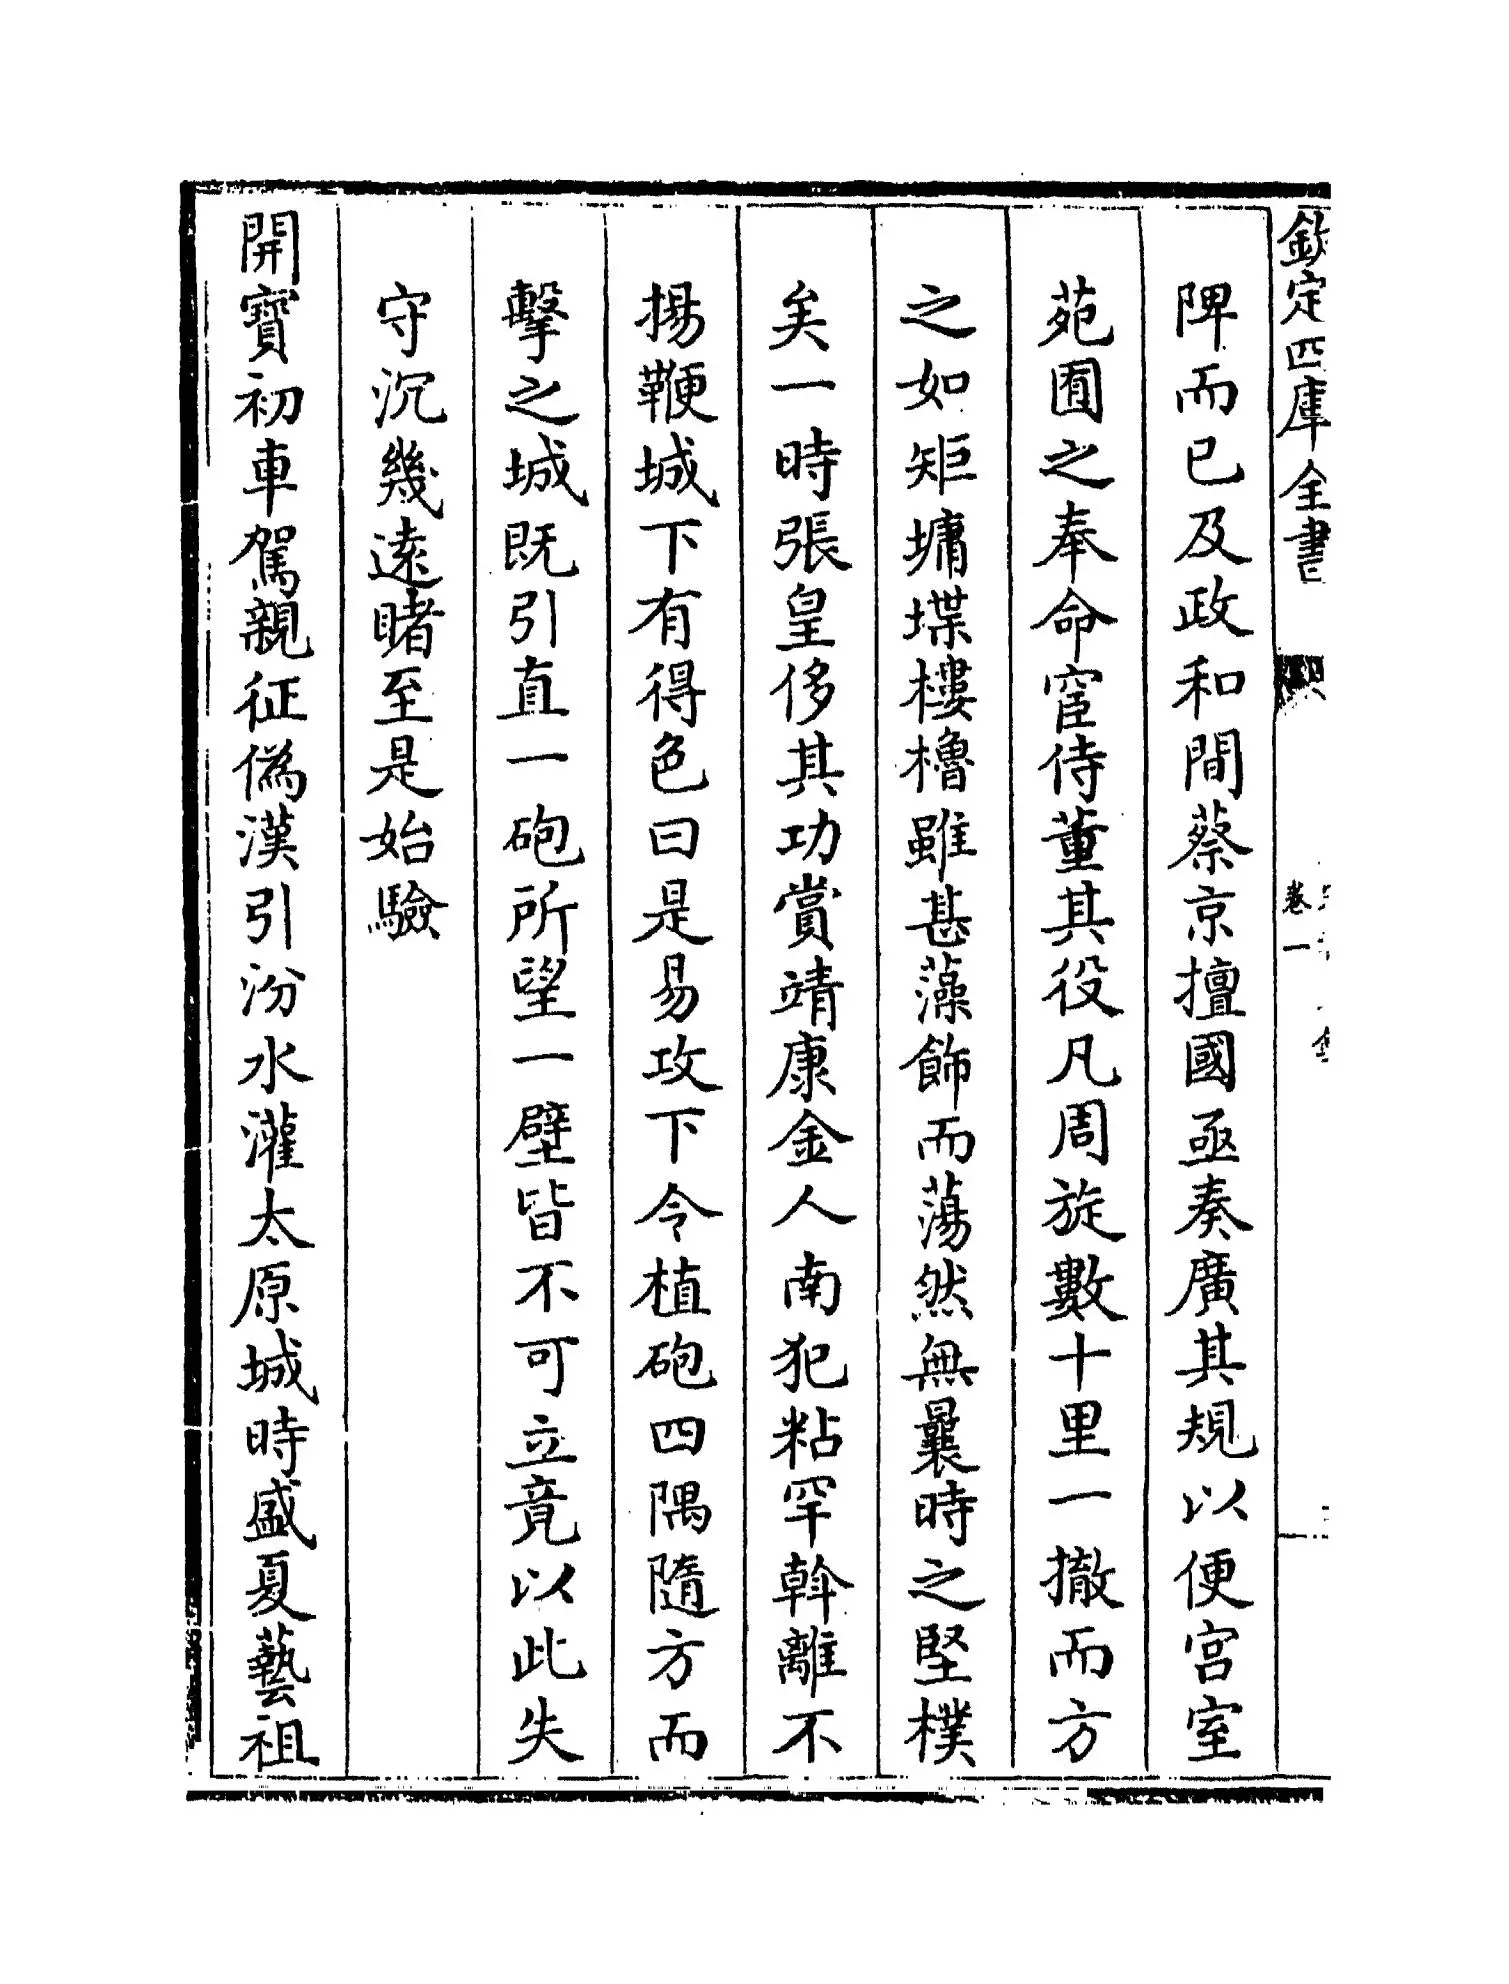 欽定四庫全書
卷一
陴而已及政和間蔡京擅國亟奏廣其規以便宫室
苑囿之奉命宦侍董其役凡周旋數十里一撤而方
之如矩墉堞樓櫓雖甚藻飾而蕩然無曩時之堅樸
矣一時張皇侈其功賞靖康金人南犯粘罕斡離不
揚鞭城下有得色曰是易攻下令植砲四隅隨方而
擊之城既引直一砲所望一壁皆不可立竟以此失
守沉幾遠睹至是始驗
開寶初車駕親征偽漢引汾水灌太原城時盛夏藝祖